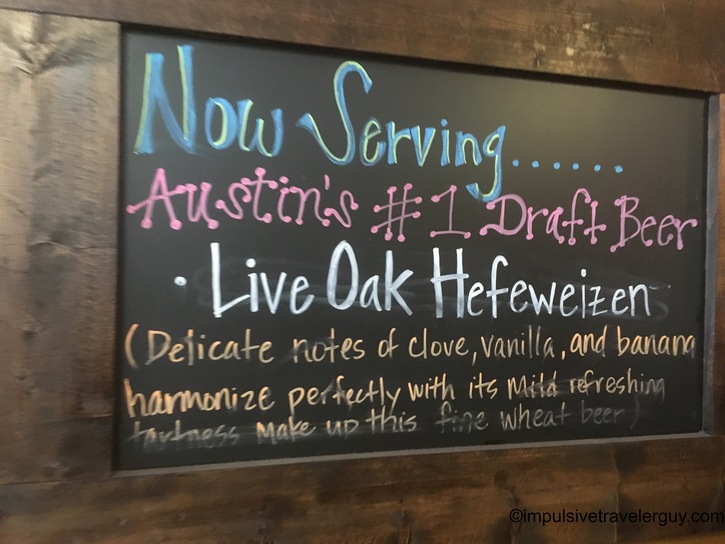 Now Serving......
Austin's #1 Draft Beer
· Live Oak Hefeweizen
(Delicate notes of clove, vanilla, and banana
harmonize perfectly with its mild refreshing
tartness make up this fine wheat beer)
©impulsivetravelerguy.com